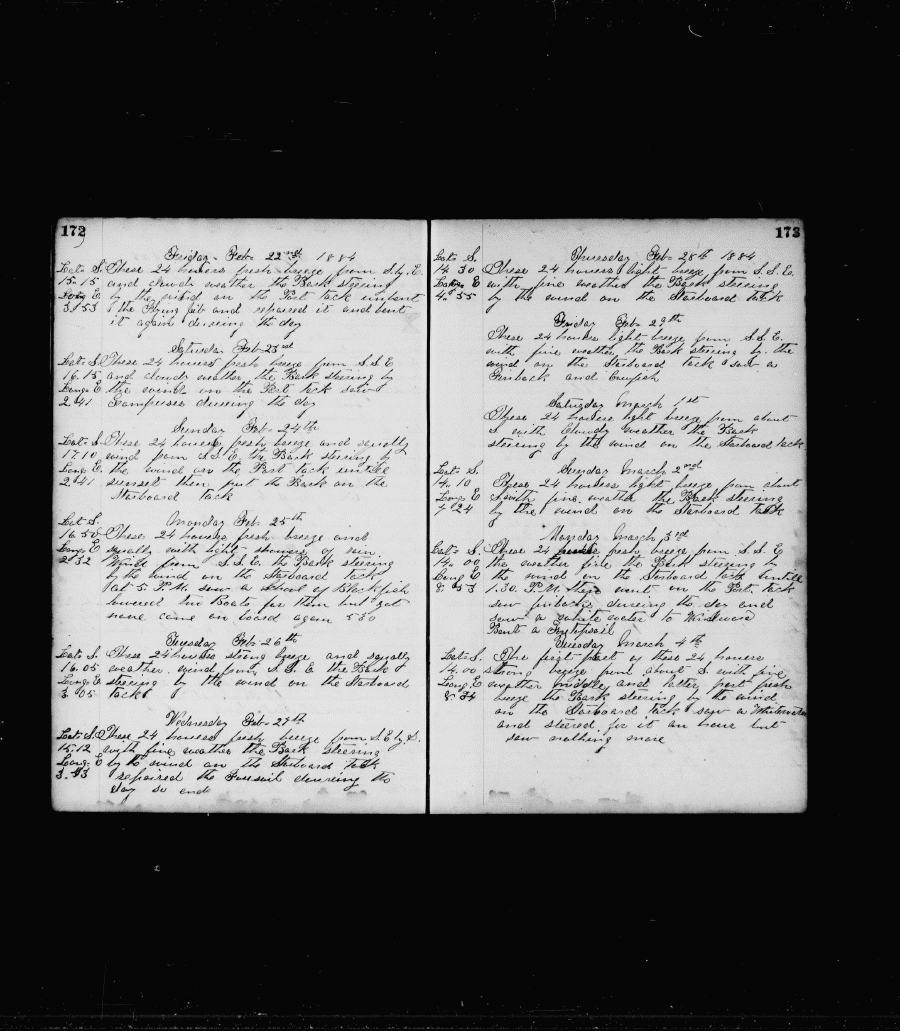 172
Friday Feb 22nd 1884
Lat S. These 24 houers fresh breeze from S. by. E.
15.15 and cloudy weather the Bark steering
Long E. by the wind on the Port tack unbent
3.53 the Flying jib and repaired it and bent
it again dureing the day
Saturday Feb 23rd
Lat S. These 24 houers fresh breeze from S.S.E
16.15 and cloudy weather the Bark steering by
Long E the wind on the Port tack saw
2.41 Grampuses dureing the day
Sunday Feb 24th
Lat S. These 24 houers fresh breeze and squally
17.10 wind from S.S.E. the Bark steering by
Long E the wind on the Port tack untill
2.41 sunset then put the Bark on the
Starboard tack
Lat S. Monday Feb 25th
16.50 These 24 houers fresh breeze and
Long E squally with light showers of rain
2.32 Wind from S.S.E. the Bark steering
by the wind on the Starboard tack
at 5 P.M. saw a School of Blackfish
lowered two Boats for them but got
none came on board again 5.30
Tuesday Feb 26th
Lat S. These 24 houers strong breeze and squally
16.05 weather wind from S.S.E the Bark
Long E steering by the wind on the Starboard
3.05 tack
Wednesday Feb 27th
Lat S. These 24 houers fresh breeze from S.E by S.
15.12 with fine weather the Bark steering
Long. E by the wind on the Starboard tack
repaired the Foresail dureing the
Day so ends
173
Lat S. Thursday Feb 28th 1884
14 30 These 24 houers light breeze from S.S.E.
Long E with fine weather the Bark steering
4.55 by the wind on the Starboard tack
Friday Feb 29th
These 24 houers light breeze from S.S.E.
with fine weather the Bark steering by the
wind on the Starboard tack saw a
Finback and Cowfish
Saturday March 1st
These 24 houers light breeze from about
S with Cloudy weather the Bark
steering by the wind on the Starboard tack
Lat S. Sunday March 2nd
14.10 These 24 houers light breeze from about
Long E S with fine weather the Bark steering
7.24 by the wind on the Starboard tack
Monday March 3rd
Lat S. These 24 houers fresh breeze from S.S.E
14.00 the weather fine the Bark steering by
Long E the wind on the Starboard tack untill
8.53 1.30 P.M. then went on the Port tack
saw finbacks dureing the day and
saw a white water to Windward
Bent a
Tuesday March 4th
Lat S. The first part of these 24 houers
14.00 strong breeze from about S. with fine
Long E weather middle and latter part fresh
8.34 breeze the Bark steering by the wind
on the Starboard tack saw a Whitewater
and steered for it an hour but
saw nothing more